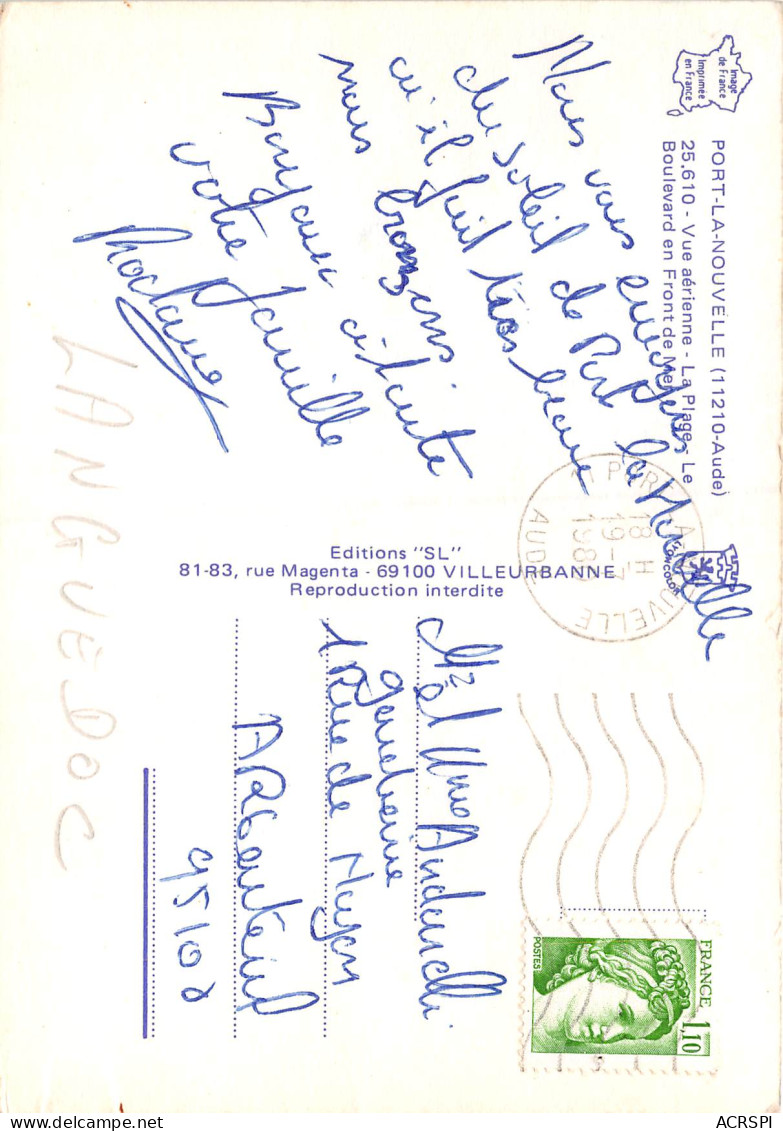 Image
de France
Imprimée
en France
PORT-LA-NOUVELLE (11210-Aude)
25.610 - Vue aérienne - La Plage - Le
Boulevard en Front de Mer
Nous vous envoyons
du soleil de Port la Nouvelle
qu'il fait très beau
nous bronzons
Bonjour à toute
votre famille
LANGUEDOC
Editions "SL"
81-83, rue Magenta - 69100 VILLEURBANNE
Reproduction interdite
11 PORT LA NOUVELLE
18 H
19-7
AUDE
Mr et Mme
1 Rue de
ARGenteuil
95100
FRANCE
1,10
POSTES
ACRSPI